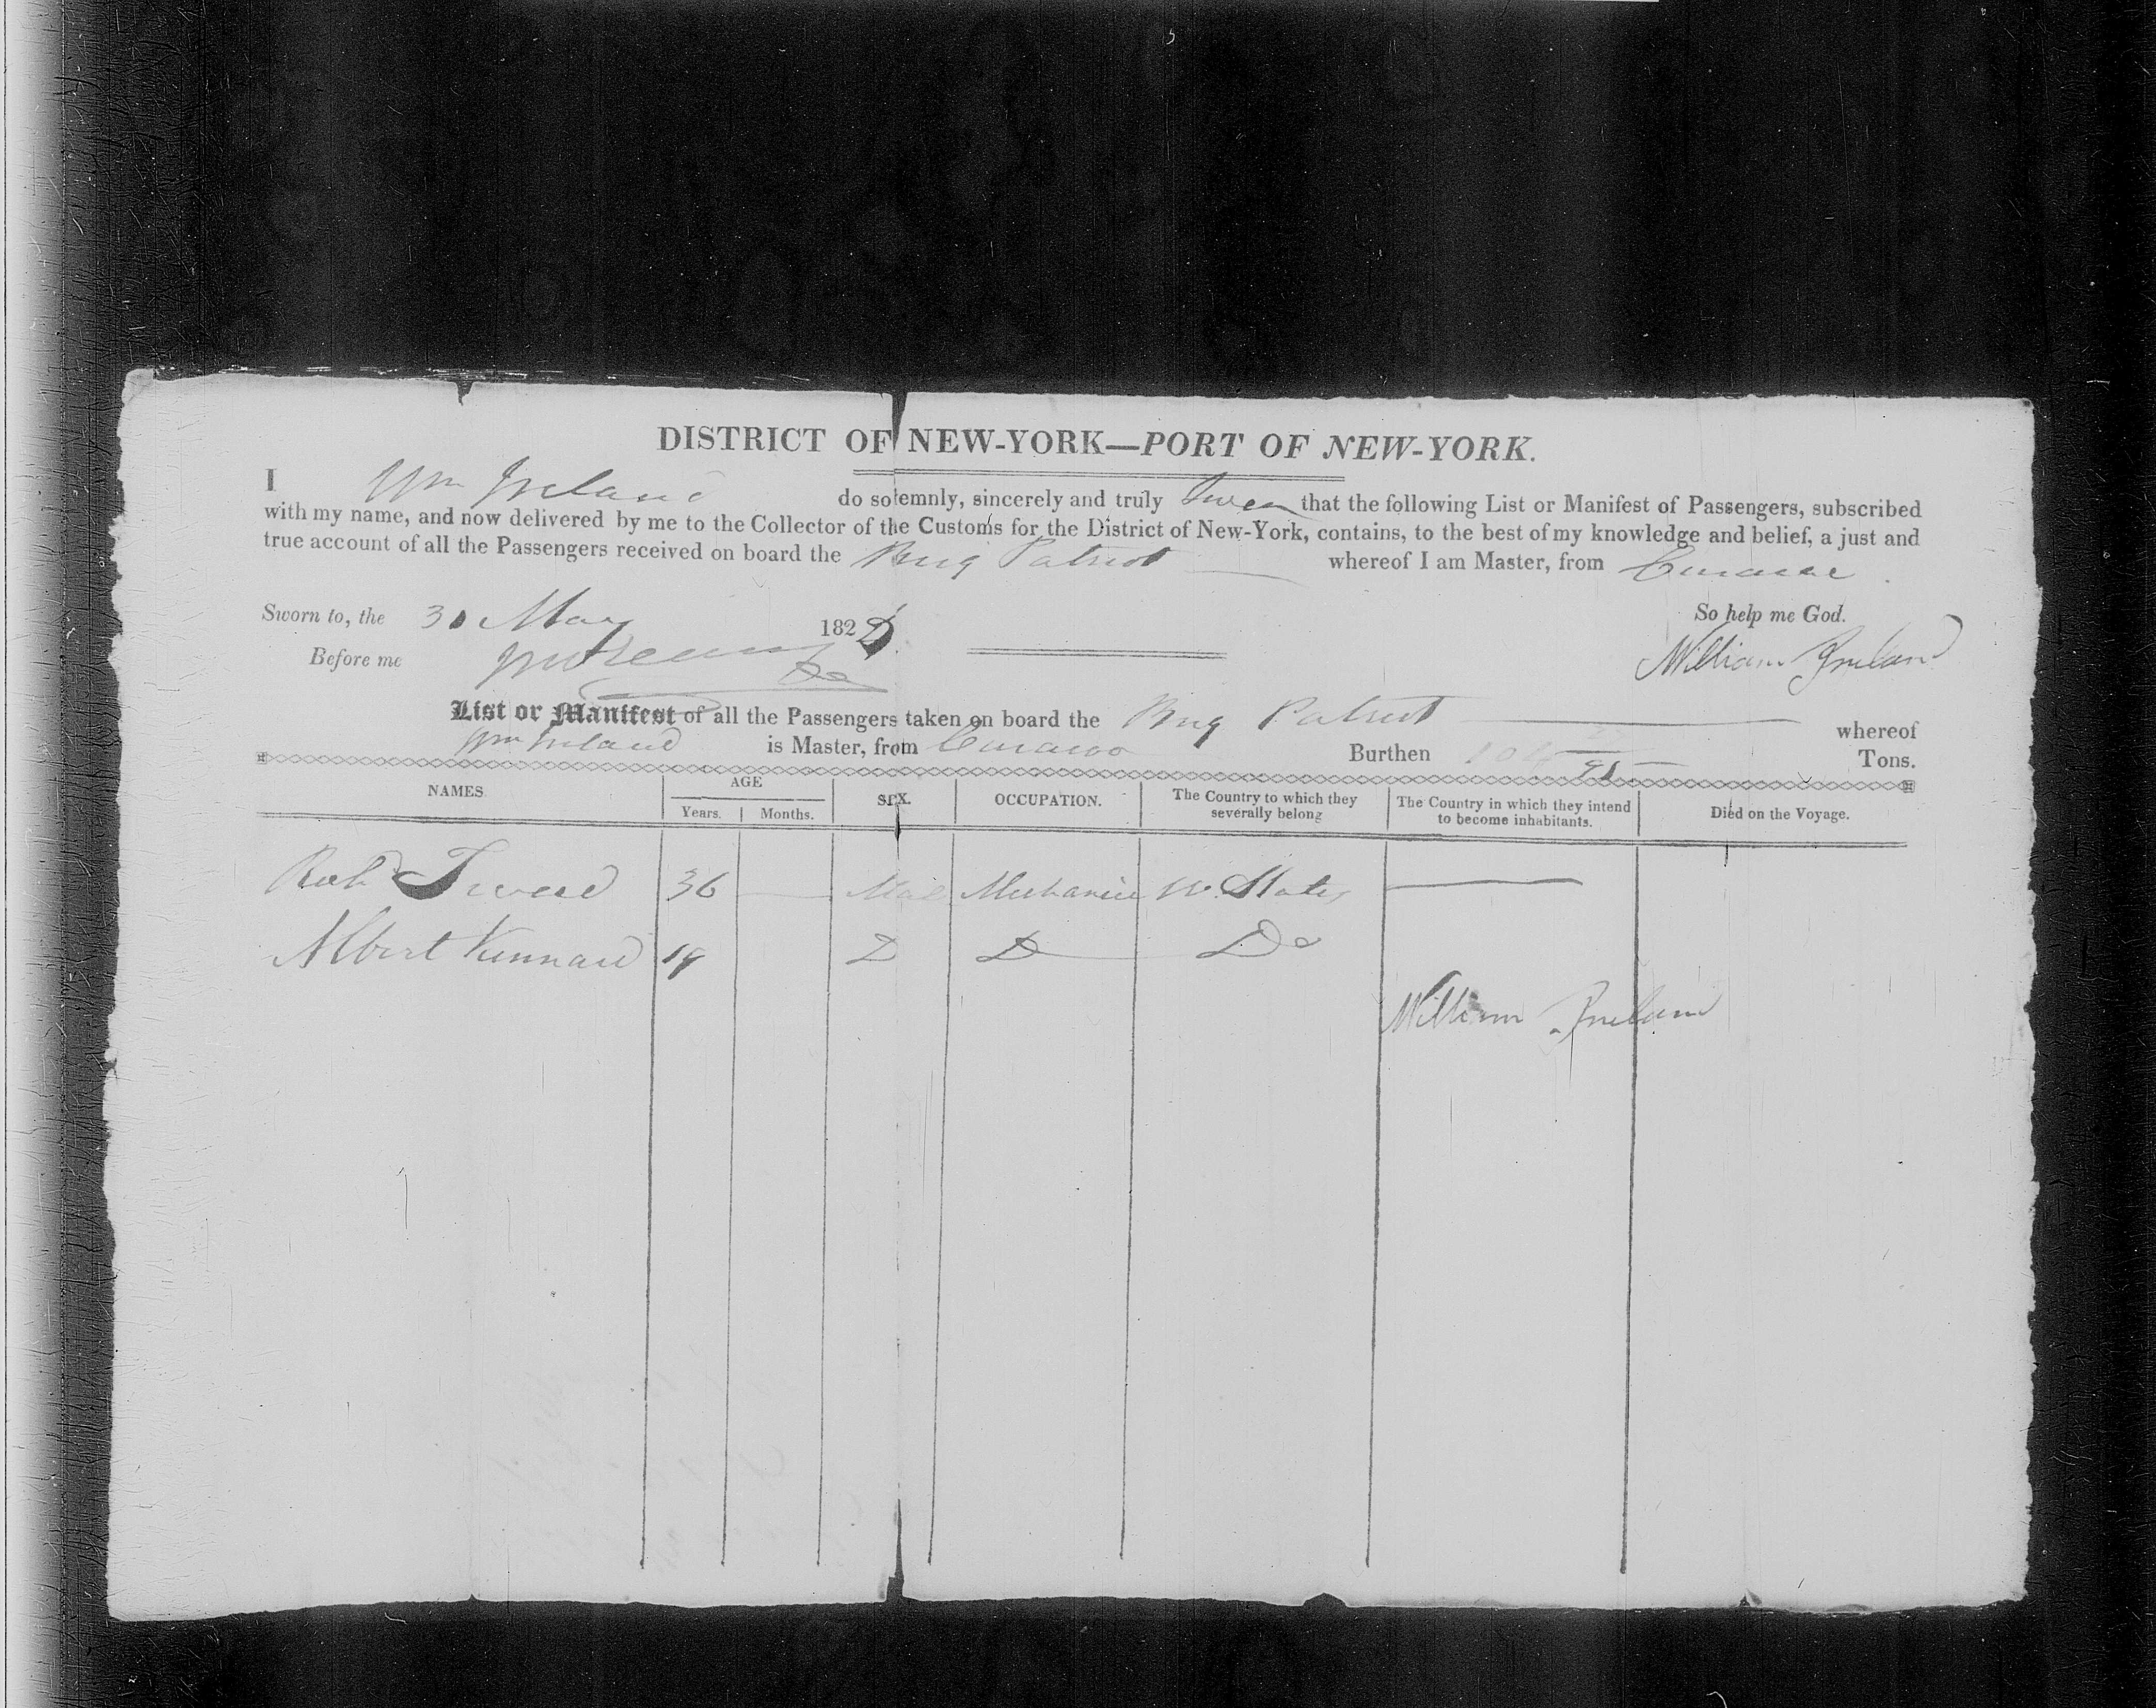 DISTRICT OF NEW-YORK—PORT OF NEW-YORK.
I Wm Ireland do solemnly, sincerely and truly Swear that the following List or Manifest of Passengers, subscribed
with my name, and now delivered by me to the Collector of the Customs for the District of New-York, contains, to the best of my knowledge and belief, a just and
true account of all the Passengers received on board the Brig Patriot whereof I am Master, from Curacao
Sworn to, the 31 May 182 So help me God.
Before me William Ireland
List or Manifest of all the Passengers taken on board the Brig Patriot whereof
Wm Ireland is Master, from Curacao Burthen 104 95 Tons.
NAMES. AGE SEX. OCCUPATION. The Country to which they severally belong The Country in which they intend to become inhabitants. Died on the Voyage.
Years. Months.
Robt Tweed 36 Male Mechanic U. States
Albert Kunnard 19 D D Do
William Ireland